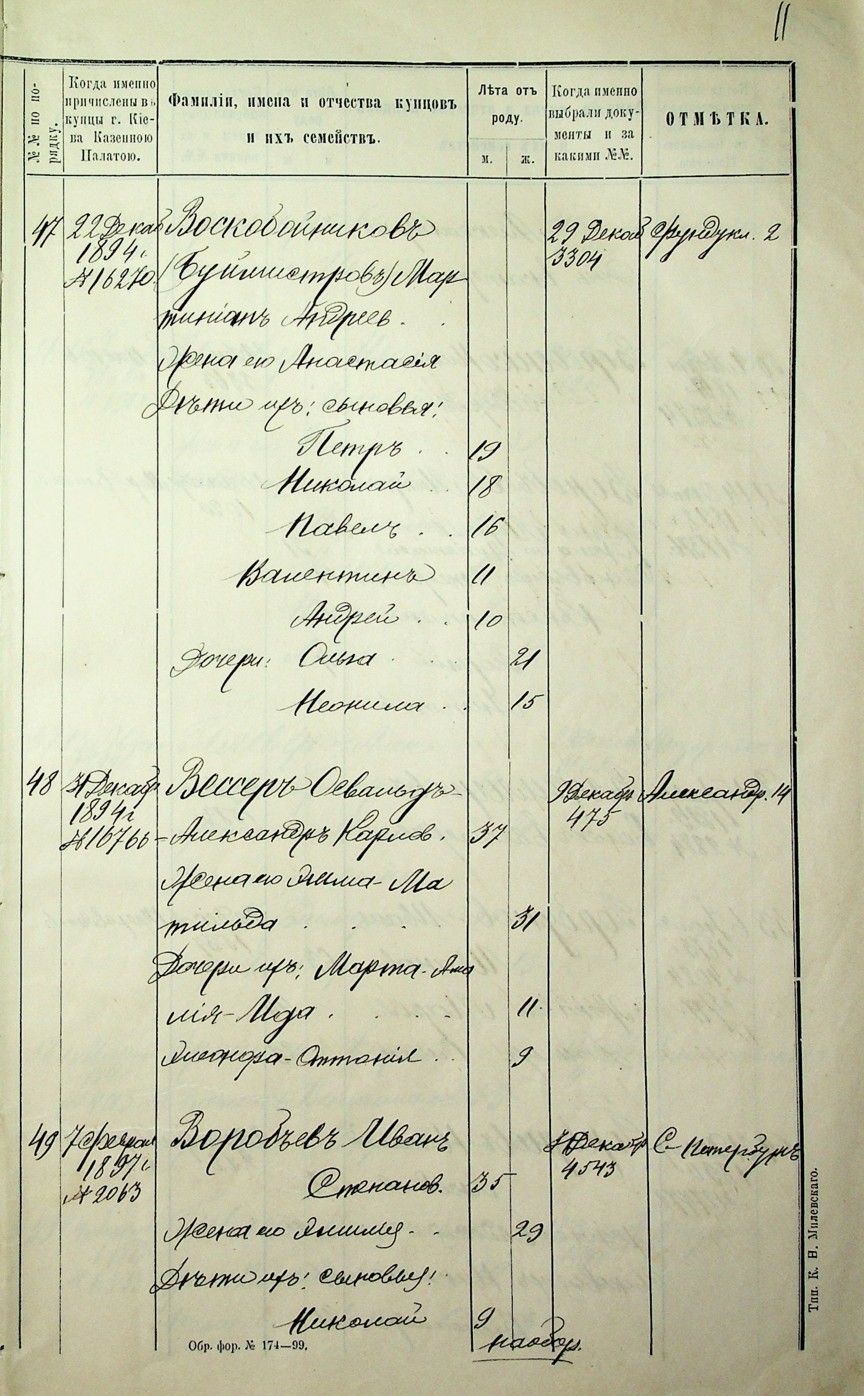 11
№№ по по-
рядку.
Когда именно
причислены въ
купцы г. Кіе-
ва Казенною
Палатою.
Фамиліи, имена и отчества купцовъ
и ихъ семействъ.
Лѣта отъ
роду.
м. ж.
Когда именно
выбрали доку-
менты и за
какими №№.
ОТМѢТКА.
47 22 Декаб Воскобойниковъ 29 Декаб Фундукл. 2
1894 г. 3304
№ 16270 (Буймистровъ) Мар
тиніанъ Андреев.
Жена его Анастасія
Дѣти ихъ: сыновья:
Петръ 19
Николай 18
Павелъ 16
Валентинъ 11
Андрей 10
Дочери: Ольга 21
Неонила 15
48 31 Декабр Бессеръ Освальдъ- 9 Декабр Александр. 14
1894 г 475
№ 16766 -Александръ Карлов. 37
Жена его Эмма- Ма
тильда 31
Дочери ихъ: Марта- Ама
лія- Ида 11
-Антонія 9
49 7 Феврал Воробьевъ Иванъ Декабр С-Петербургъ
1897 г 4543
№ 2063 Степанов. 35
Жена его 29
Дѣти ихъ: сыновья:
Николай 9
наобор.
Обр. фор. № 174—99.
Тип. К. Н. Милевскаго.